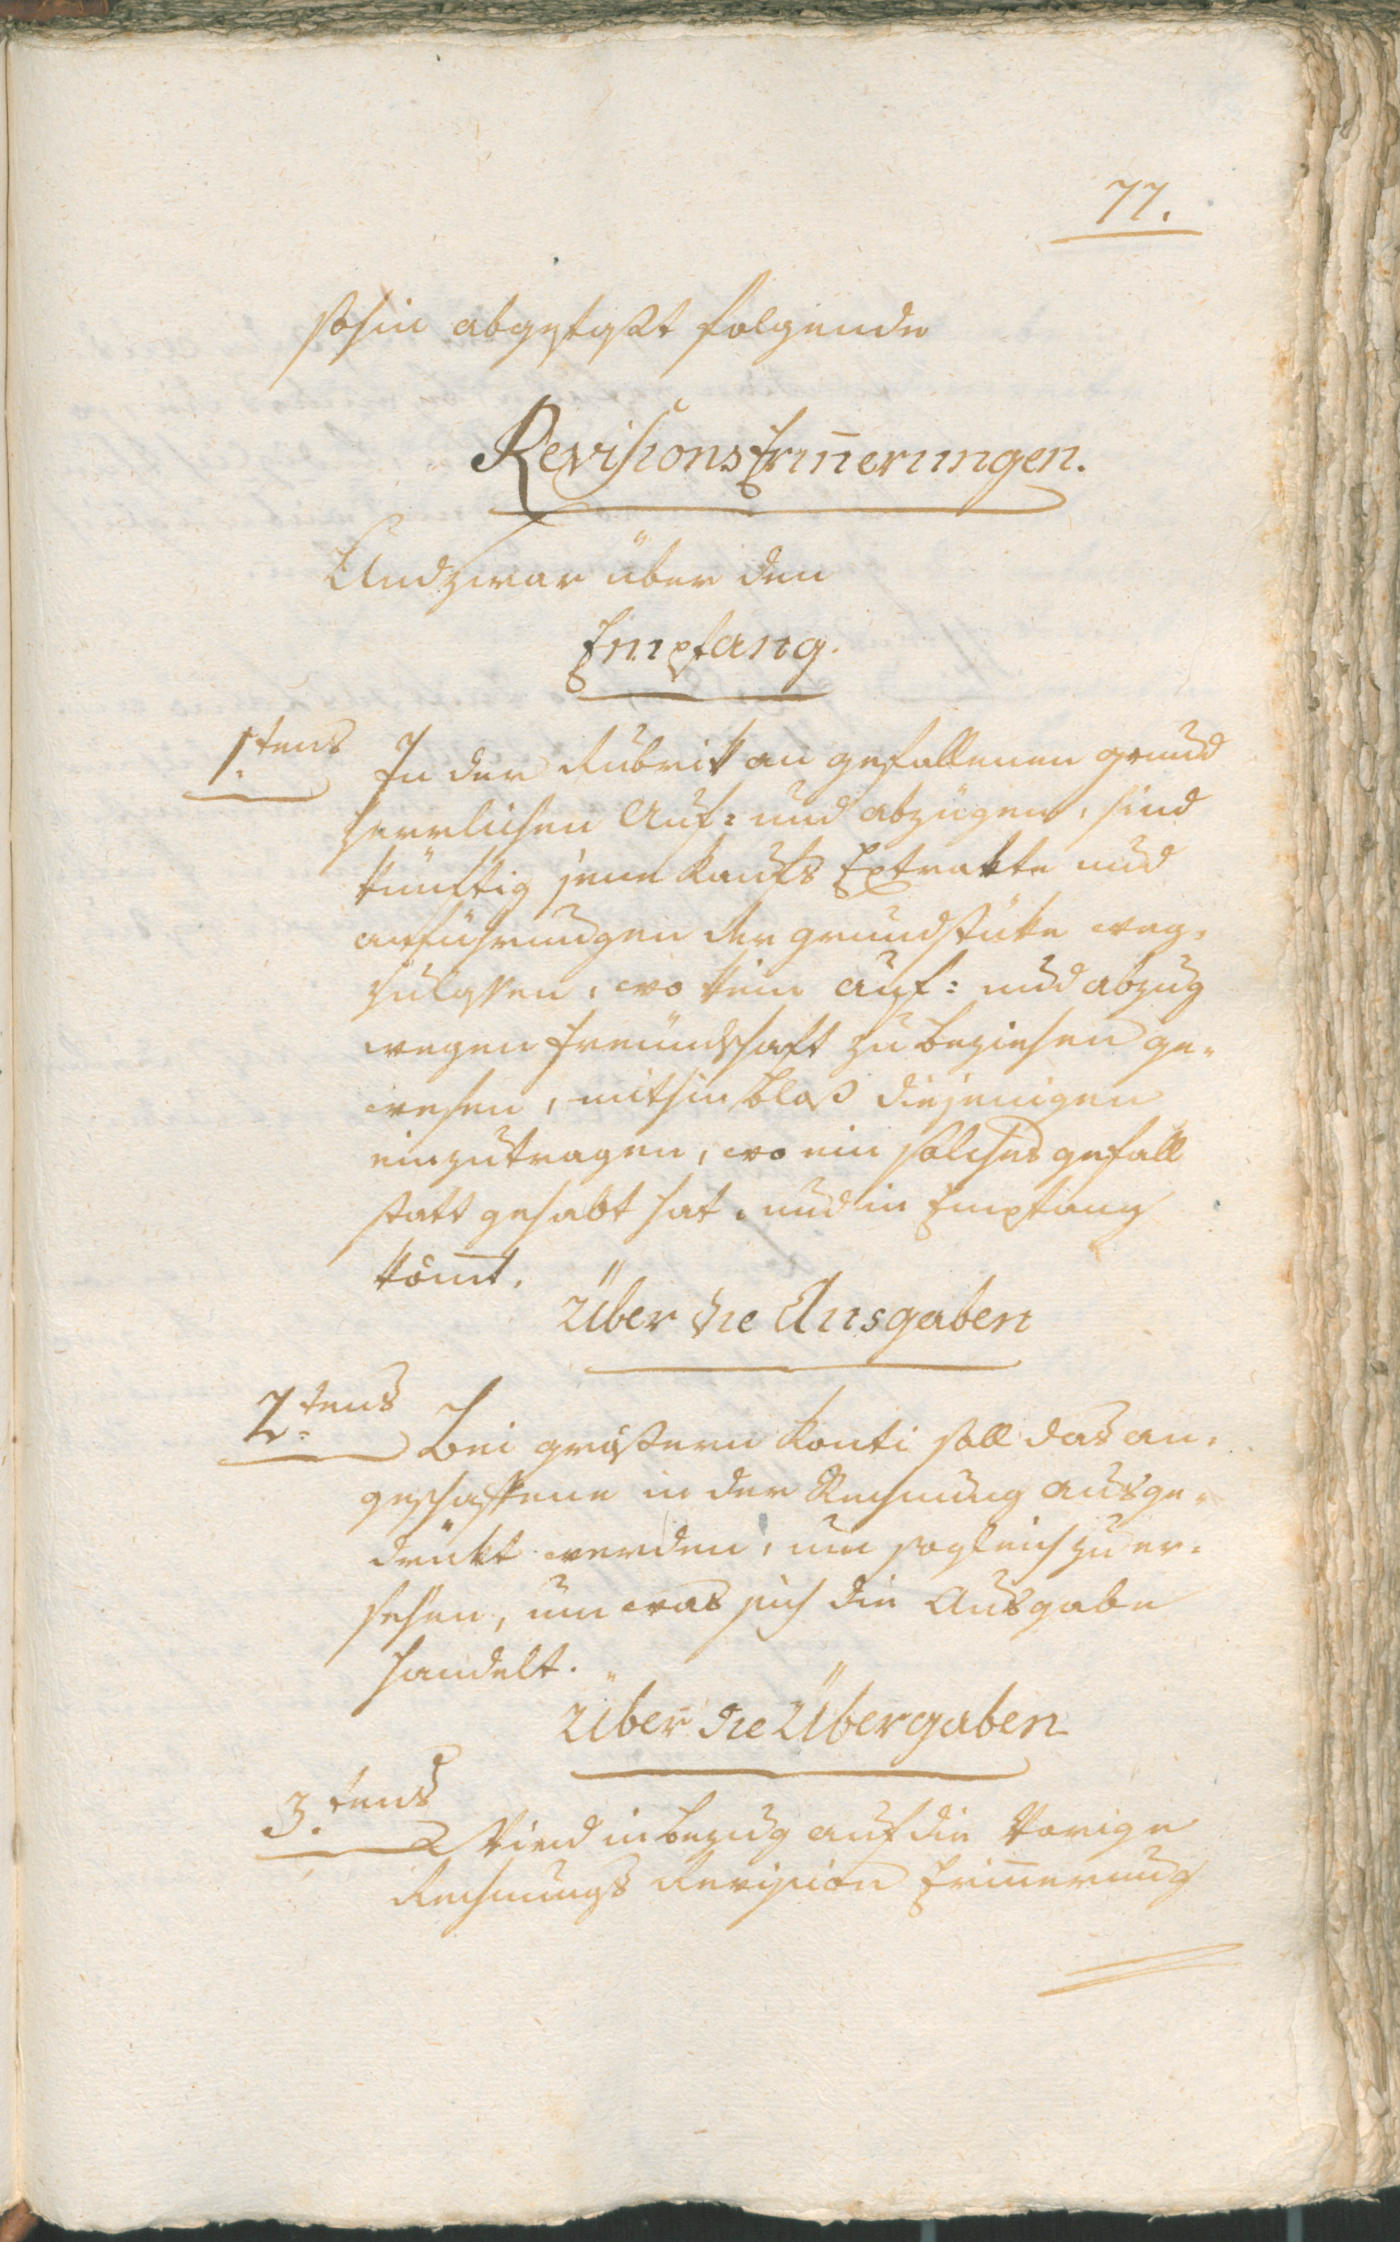 77.
sohin abgefaßt folgende
Revisions Erin̄erungen.
Und zwar über den
Empfang.
1.tens In der Rubrik an gefallenen grund
herrlichen Auf= und abzügen, sind
künftig jene Kaufs Extrakte und
anführungen der grundstüke weg,
zulassen, wo kein auf= und abzug
wegen freündschaft zu beziehen ge„
wesen, mithin bloß diejenigen
einzutragen, wo ein solches gefäll
statt gehabt hat, und in Empfang
köm̄t.
Über die Ausgaben
2.tens Bei größern Konti soll das an„
geschaffene in der Rechnung ausge„
drükt werden, um sogleich zu er„
sehen, um was sich die Ausgabe
handelt.
Über die Übergaben
3.tens Wird in bezug auf die Vorige
Rechnungs Revision Erin̄erung